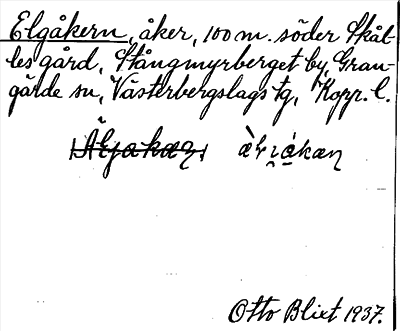 Elgåkern, åker, 100 m. söder Skåt-
tes gård, Stångmyrberget by, Gran-
gärde sn, Västerbergslags tg, Kopp. l.
Otto Blixt 1937.